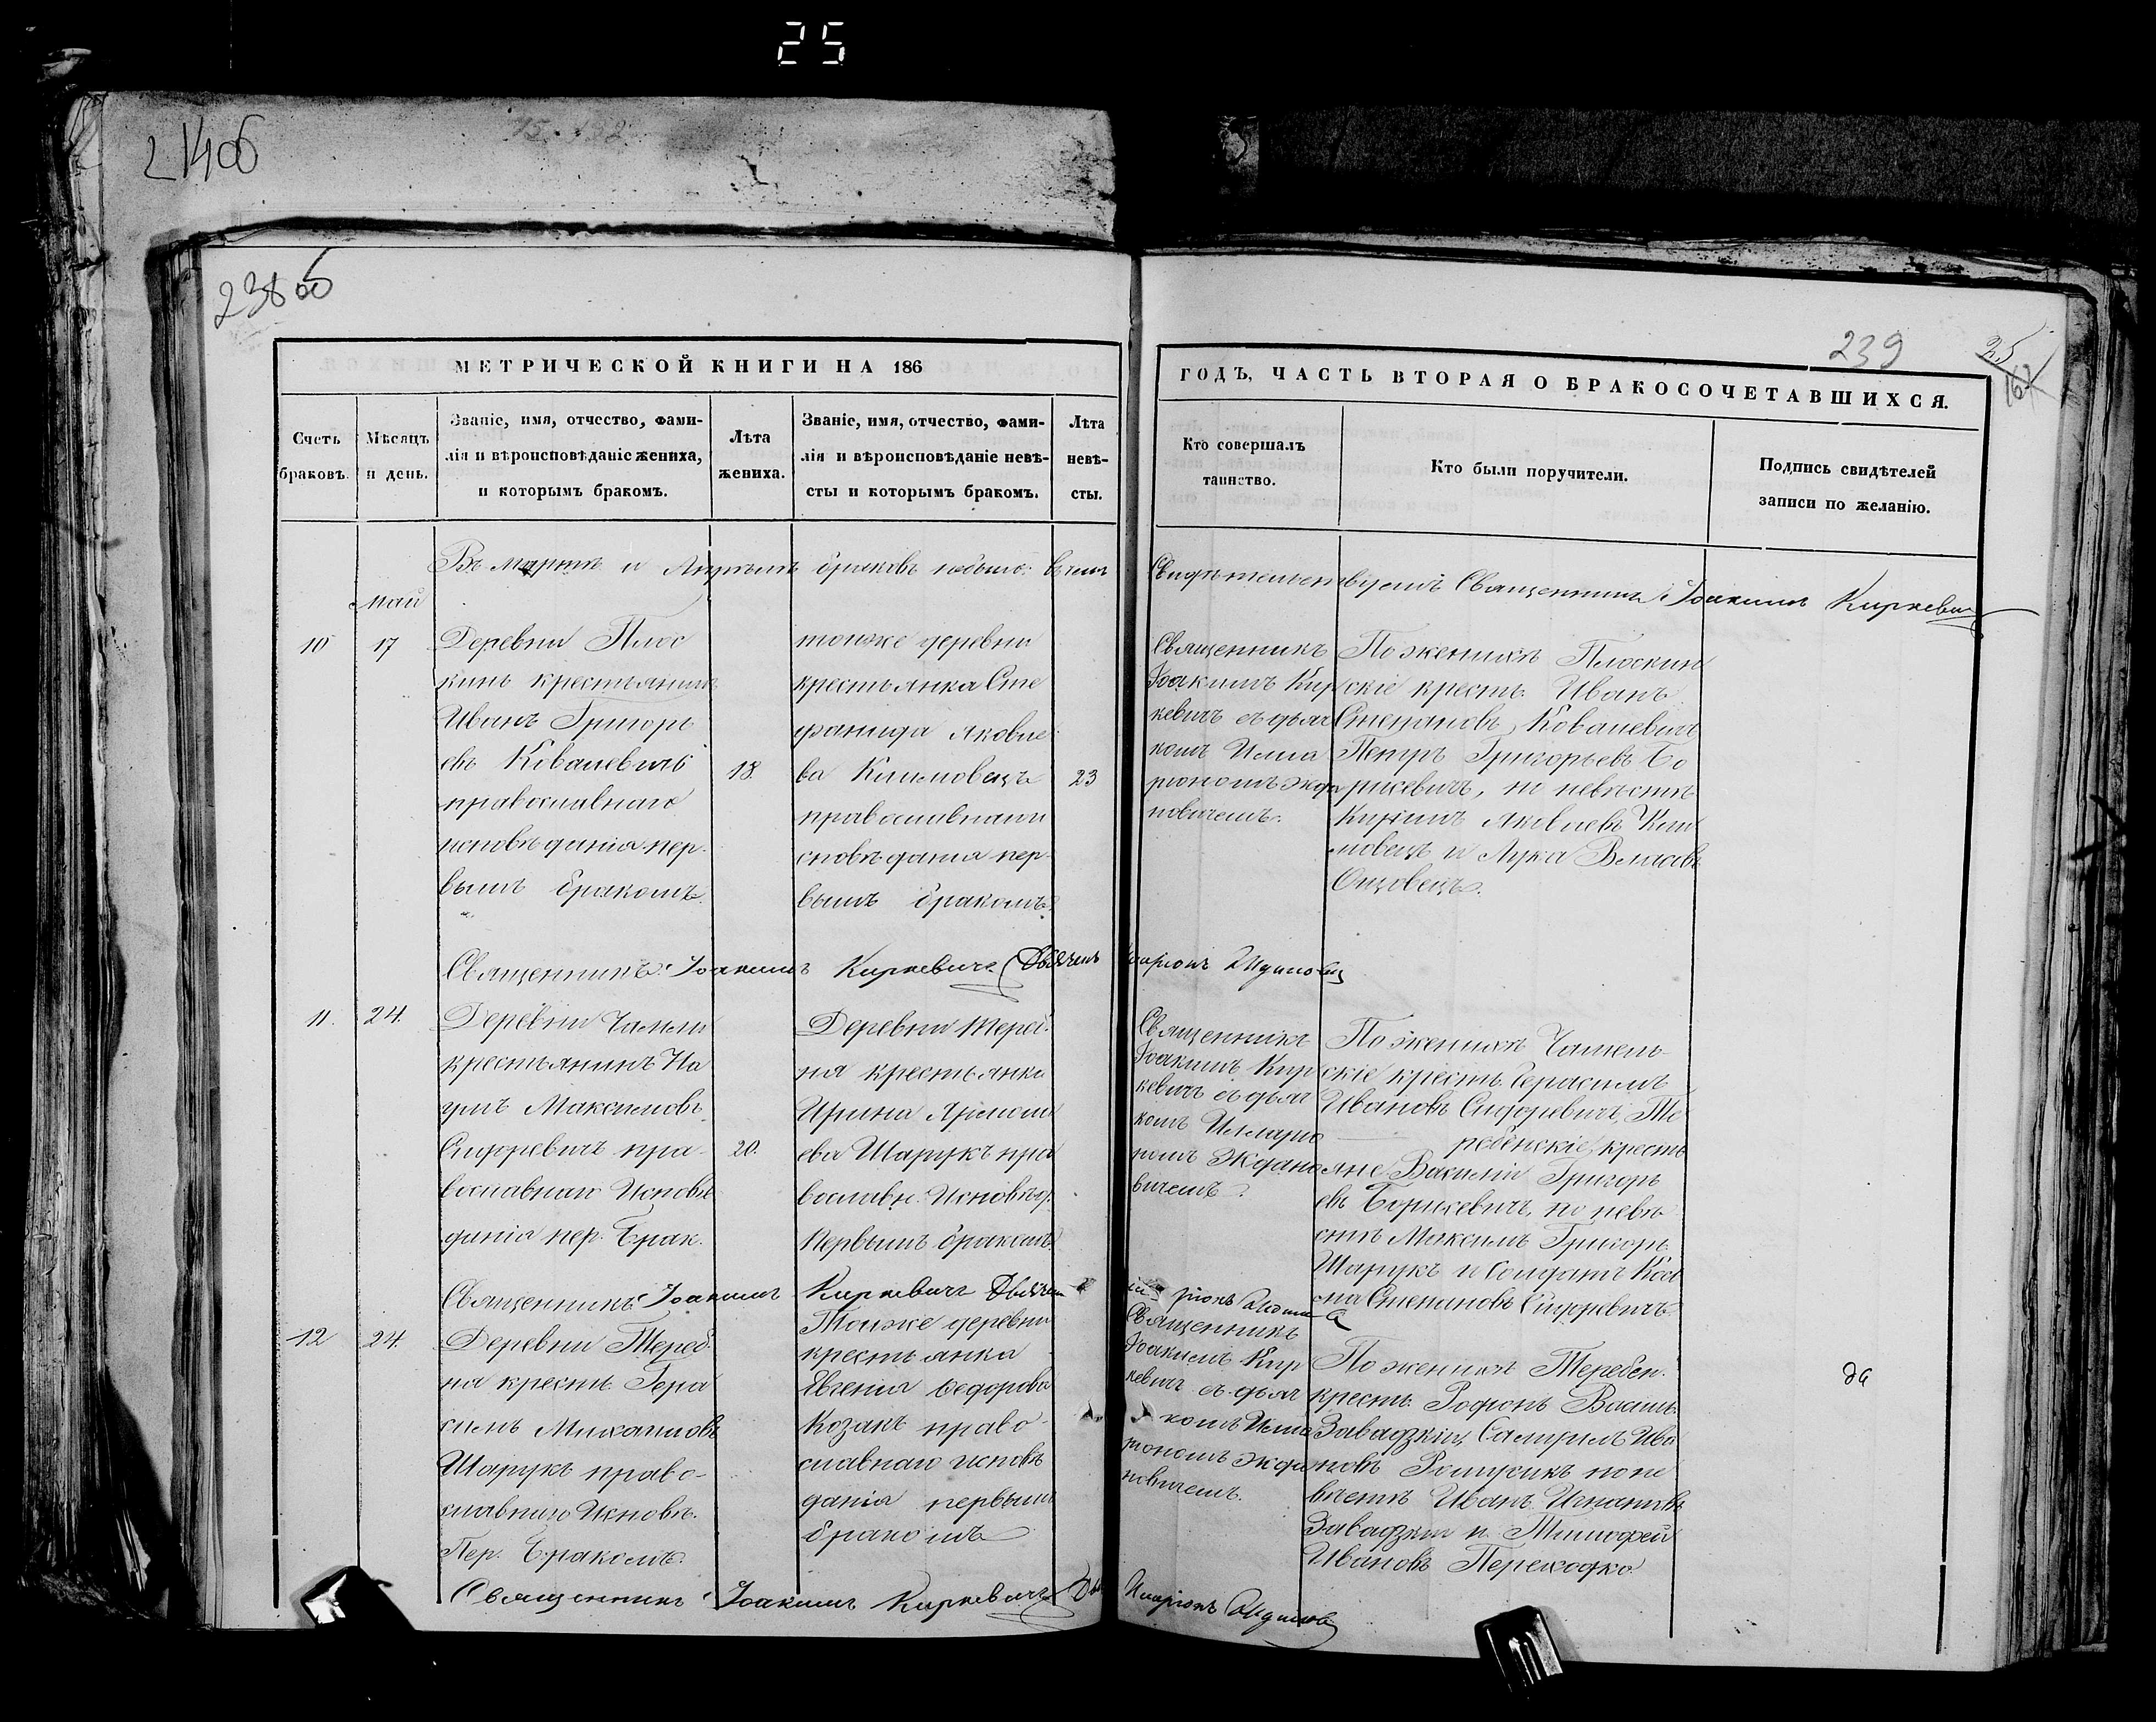 25
238 об
239
МЕТРИЧЕСКОЙ КНИГИ НА 186
ГОДЪ, ЧАСТЬ ВТОРАЯ О БРАКОСОЧЕТАВШИХСЯ.
Счетъ
браковъ.
Мѣсяцъ
и день.
Званіе, имя, отчество, фами-
лія и вѣроисповѣданіе жениха,
и которымъ бракомъ.
Лѣта
жениха.
Званіе, имя, отчество, фами-
лія и вѣроисповѣданіе невѣ-
сты и которымъ бракомъ.
Лѣта
невѣ-
сты.
Кто совершалъ
таинство.
Кто были поручители.
Подпись свидѣтелей
записи по желанію.
Въ мартѣ и Апрѣлѣ браковъ небыло.
Свидѣтельствуетъ Священникъ Іоакимъ Киркевичъ
май
10
17
Деревни Плос
кинь крестьянинъ
Иванъ Григорь
евъ Ковалевичъ
православнаго
исповѣданія пер-
вымъ бракомъ.
18.
тойже деревни
крестьянка Сте
фанида Яковле
ва Климовецъ
православнаго
исповѣданія пер-
вымъ бракомъ.
23
Священникъ
Іоакимъ Кир
кевичъ съ дьяч
комъ Илла
ріономъ Жда
новичемъ.
По женихѣ Плоскин
скіе кресть. Иванъ
Степановъ Ковалевичъ
Петръ Григорьевъ Бо
рисевичъ, по невѣстѣ
Яковлевъ Кли
мовецъ и Лука
Священникъ Іоакимъ Киркевичъ Дьячекъ Иларіонъ Ждановичъ
11.
24.
Деревни
крестьянинъ На
умъ Максимовъ
Сидоревичъ пра-
вославнаго Исповѣ
данія пер. Брак.
20.
Деревни Тереб.
на крестьянка
Ирина
ева Шарукъ пра
вославн. Исповѣд.
Первымъ бракомъ.
Священникъ
Іоакимъ Кир
кевичъ съ дьяч
комъ Илларіо
номъ Ждано
вичемъ.
По женихѣ
скіе кресть. Герасимъ
Ивановъ Сидоревичъ, Те
ребенскіе кресть
яне Василій Григорь
евъ Борисевичъ, по невѣ
стѣ Максимъ Григорь.
Шарукъ и Солдатъ Коз
ма Степановъ Сидоревичъ.
Священникъ Іоакимъ Киркевичъ Дьячекъ
12
24.
Деревни Тереб.
на кресть. Гера
симъ Михаиловъ
Шарукъ право-
славнаго Исповѣ.
Пер. Бракомъ.
Тойже деревни
крестьянка
Евгенія Ѳедорова
Козакъ право-
славнаго исповѣ
данія первымъ
бракомъ
Священникъ
Іоакимъ Кир
кевичъ съ дьяч
комъ Илла
ріономъ Жда
новичемъ.
По женихѣ Теребен.
кресть. Василь.
Завадзкій, Ива
новъ по не
вѣстѣ Иванъ Игнатовъ
Завадзкій и Тимофей
Ивановъ Переходко
Священникъ Іоакимъ Киркевичъ
Иларіонъ Ждановичъ